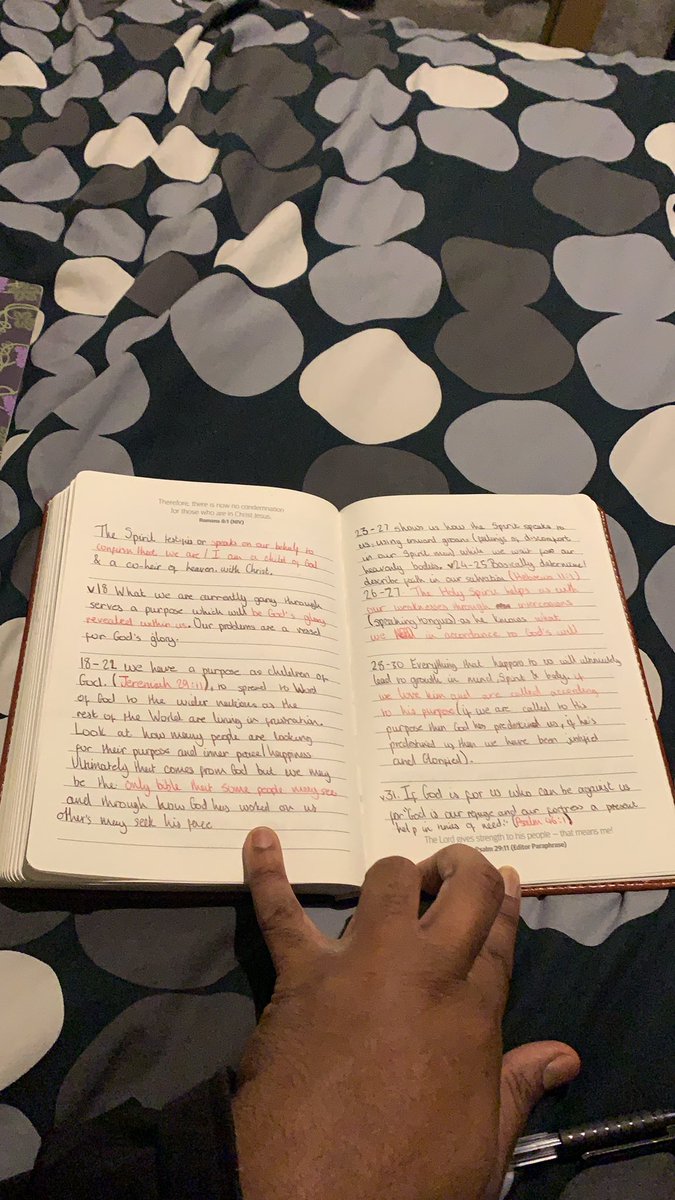 Therefore, there is now no condemnation
for those who are in Christ Jesus.
Romans 8:1 (NIV)
The Spirit testifies or speaks on our behalf to
confirm that we are / I am a child of God
& a co-heir of heaven with Christ.
v18 What we are currently going through
serves a purpose which will be God's glory
revealed within us. Our problems are a vessel
for God's glory.
18-22 we have a purpose as children of
God. (Jeremiah 29:11), to spread to Word
of God to the wider nations as the
rest of the World are living in frustration.
Look at how many people are looking
for their purpose and inner peace/happiness
Ultimately that comes from God but we may
be the only bible that some people may see
and through how God has worked on us
others may seek his face
23-27 shows us how the Spirit speaks to
us, using inward groans (feelings of discomfort
in our Spirit man) while we wait for our
heavenly bodies. v24-25 Basically determine/
describe faith in our salvation (Hebrews 11:1)
26-27 The Holy Spirit helps us with
our weaknesses through intercessions
(speaking tongues) as he knows what
we in accordance to God's will
28-30 Everything that happens to us will ultimately
lead to growth in mind, Spirit & body if
we love him and are called according
to his purpose (if we are called to His
purpose then God has predestined us, if he's
predestined us then we have been justified
and Glorified).
v.31. If God is for us who can be against us
for "God is our refuge and our fortress a present
help in times of need." (Psalm 46:1)
The Lord gives strength to his people – that means me!
Psalm 29:11 (Editor Paraphrase)